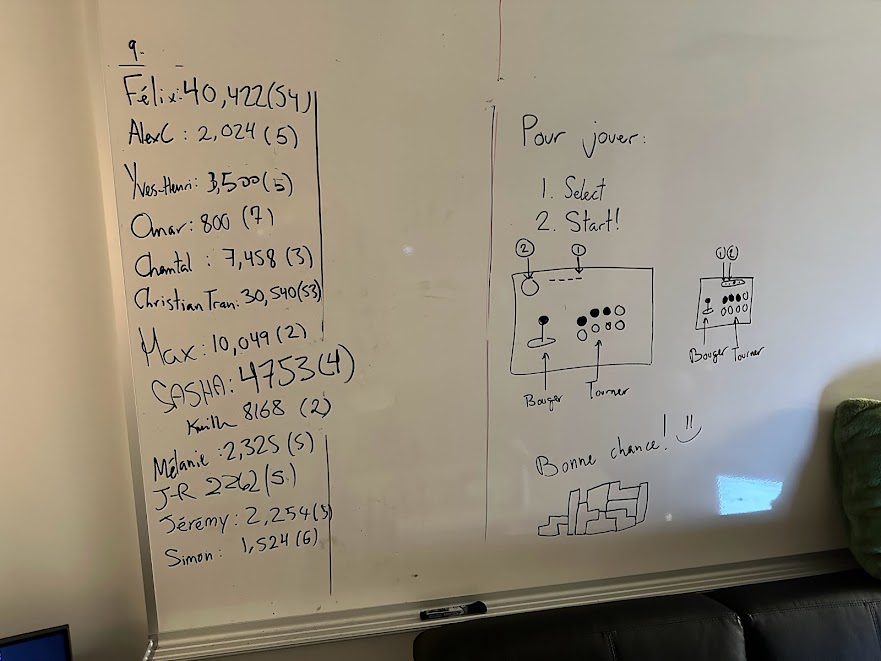 9.
Félix: 40,422 (54)
AlexC : 2,024 (5)
Yves-Henri: 3,500 (5)
Omar: 800 (7)
Chantal : 7,458 (3)
Christian Tran: 30,540 (53)
Max: 10,049 (2)
SASHA: 4753 (4)
8168 (2)
Mélanie : 2,325 (5)
J-R 2262 (5)
Jérémy : 2,254 (5)
Simon: 1,524 (6)
Pour jouer:
1. Select
2. Start!
2 1
Bouger Tourner
1 2
Bouger Tourner
Bonne chance!